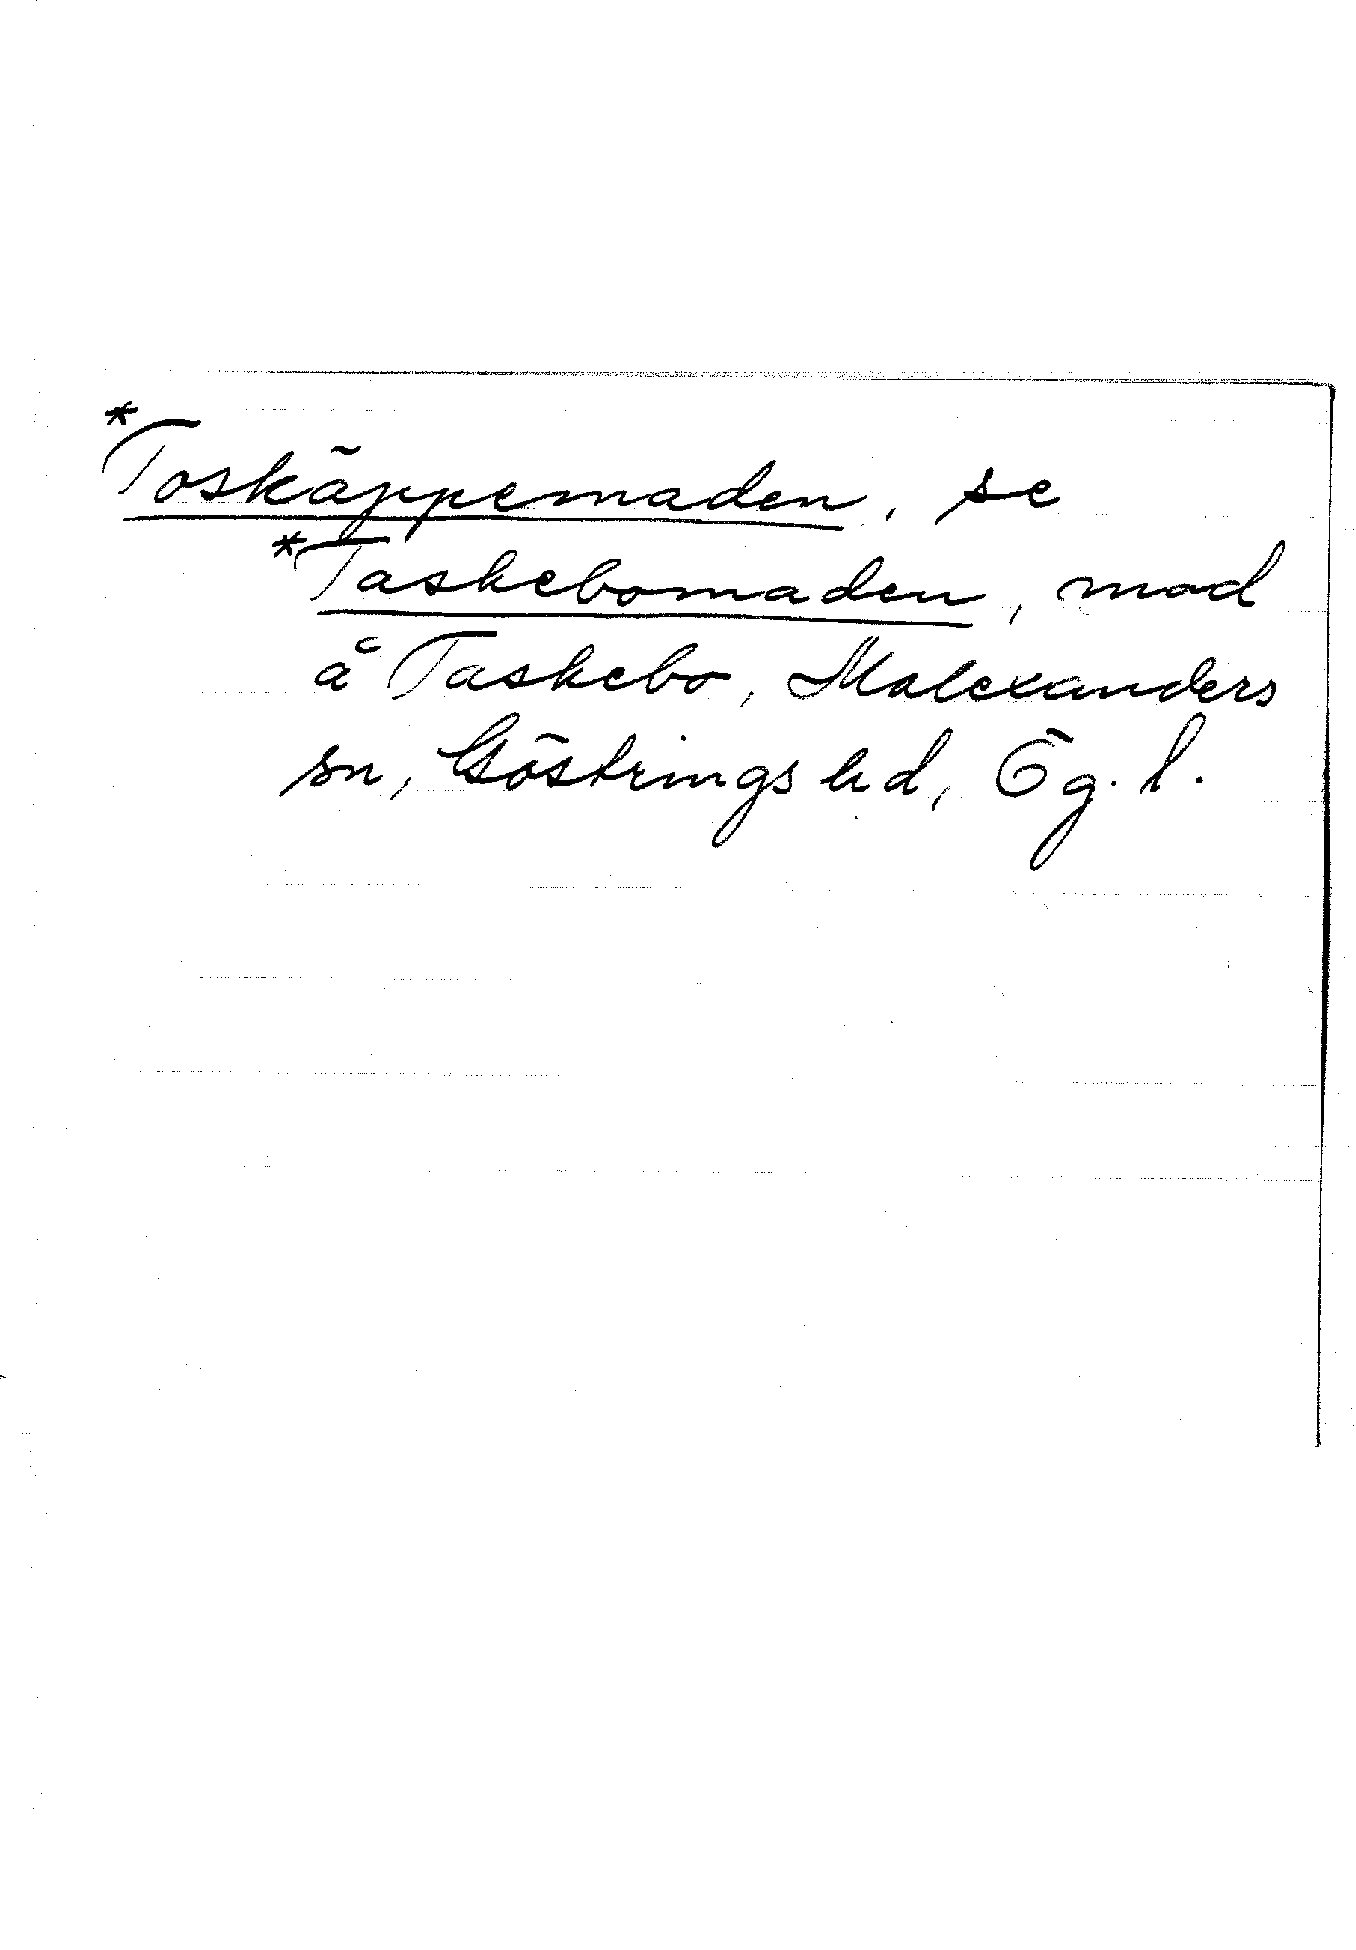 *Toskäppemaden, se
*Taskebomaden, mad
å Taskebo, Malexanders
sn, Göstrings hd, Ög. l.